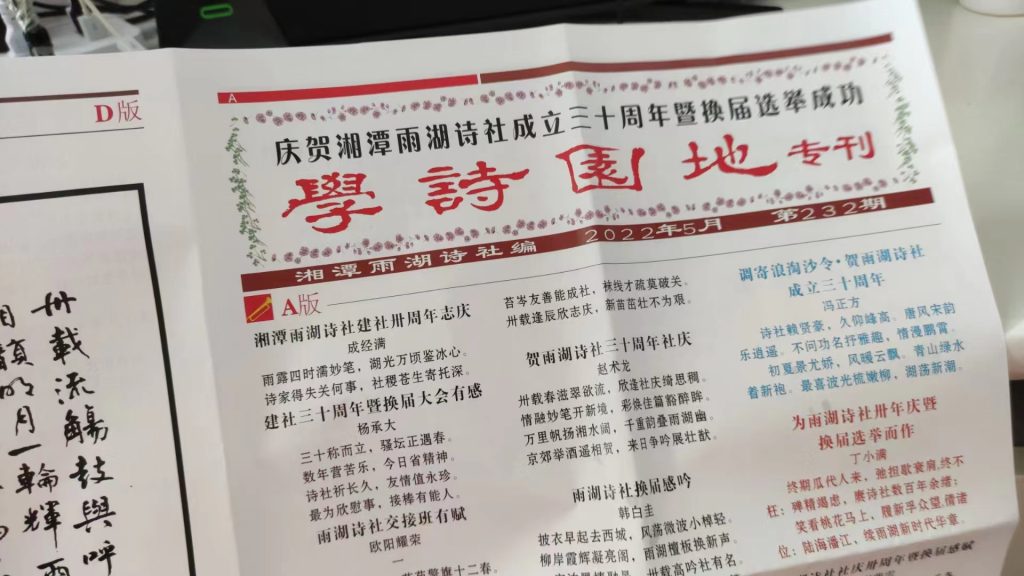 D版
卅載流觴鼓與呼
月一輪輝
A
庆贺湘潭雨湖诗社成立三十周年暨换届选举成功
學詩園地专刊
湘潭雨湖诗社编 2022年5月 第232期
A版
湘潭雨湖诗社建社卅周年志庆
成经满
雨露四时濡妙笔，湖光万顷鉴冰心。
诗家得失关何事，社稷苍生寄托深。
建社三十周年暨换届大会有感
杨承大
三十称而立，骚坛正遇春。
数年营苦乐，今日省精神。
诗社祈长久，友情值永珍。
最为欣慰事，接棒有能人。
雨湖诗社交接班有赋
欧阳耀荣
一
苔岑友善能成社，袜线才疏莫破关。
卅载逢辰欣志庆，新苗茁壮不为艰。
贺雨湖诗社三十周年社庆
赵术龙
卅载春滋翠欲流，欣逢社庆绮思稠。
情融妙笔开新境，彩焕佳篇豁醉眸。
万里帆扬湘水阔，千重韵叠雨湖幽。
京郊举酒遥相贺，来日争吟展壮猷。
雨湖诗社换届感吟
韩白圭
披衣早起去西城，风荡微波小棹轻。
柳岸霞辉凝亮阁，雨湖檀板焕新声。
卅载高吟社有名。
调寄浪淘沙令·贺雨湖诗社
成立三十周年
冯正方
诗社赖贤豪，久仰峰高。唐风宋韵
乐逍遥。不问功名抒雅趣，情漫鹏霄。
初夏景尤娇，风暖云飘。青山绿水
着新袍。最喜波光揽嫩柳，湖荡新潮。
为雨湖诗社卅年庆暨
换届选举而作
丁小满
终期瓜代人来，弛担歇衰肩，终不
枉：殚精竭忠，赓诗社数百年余绪；
笑看桃花马上，履新孚众望，倩诸
位：陆海潘江，续雨湖新时代华章。